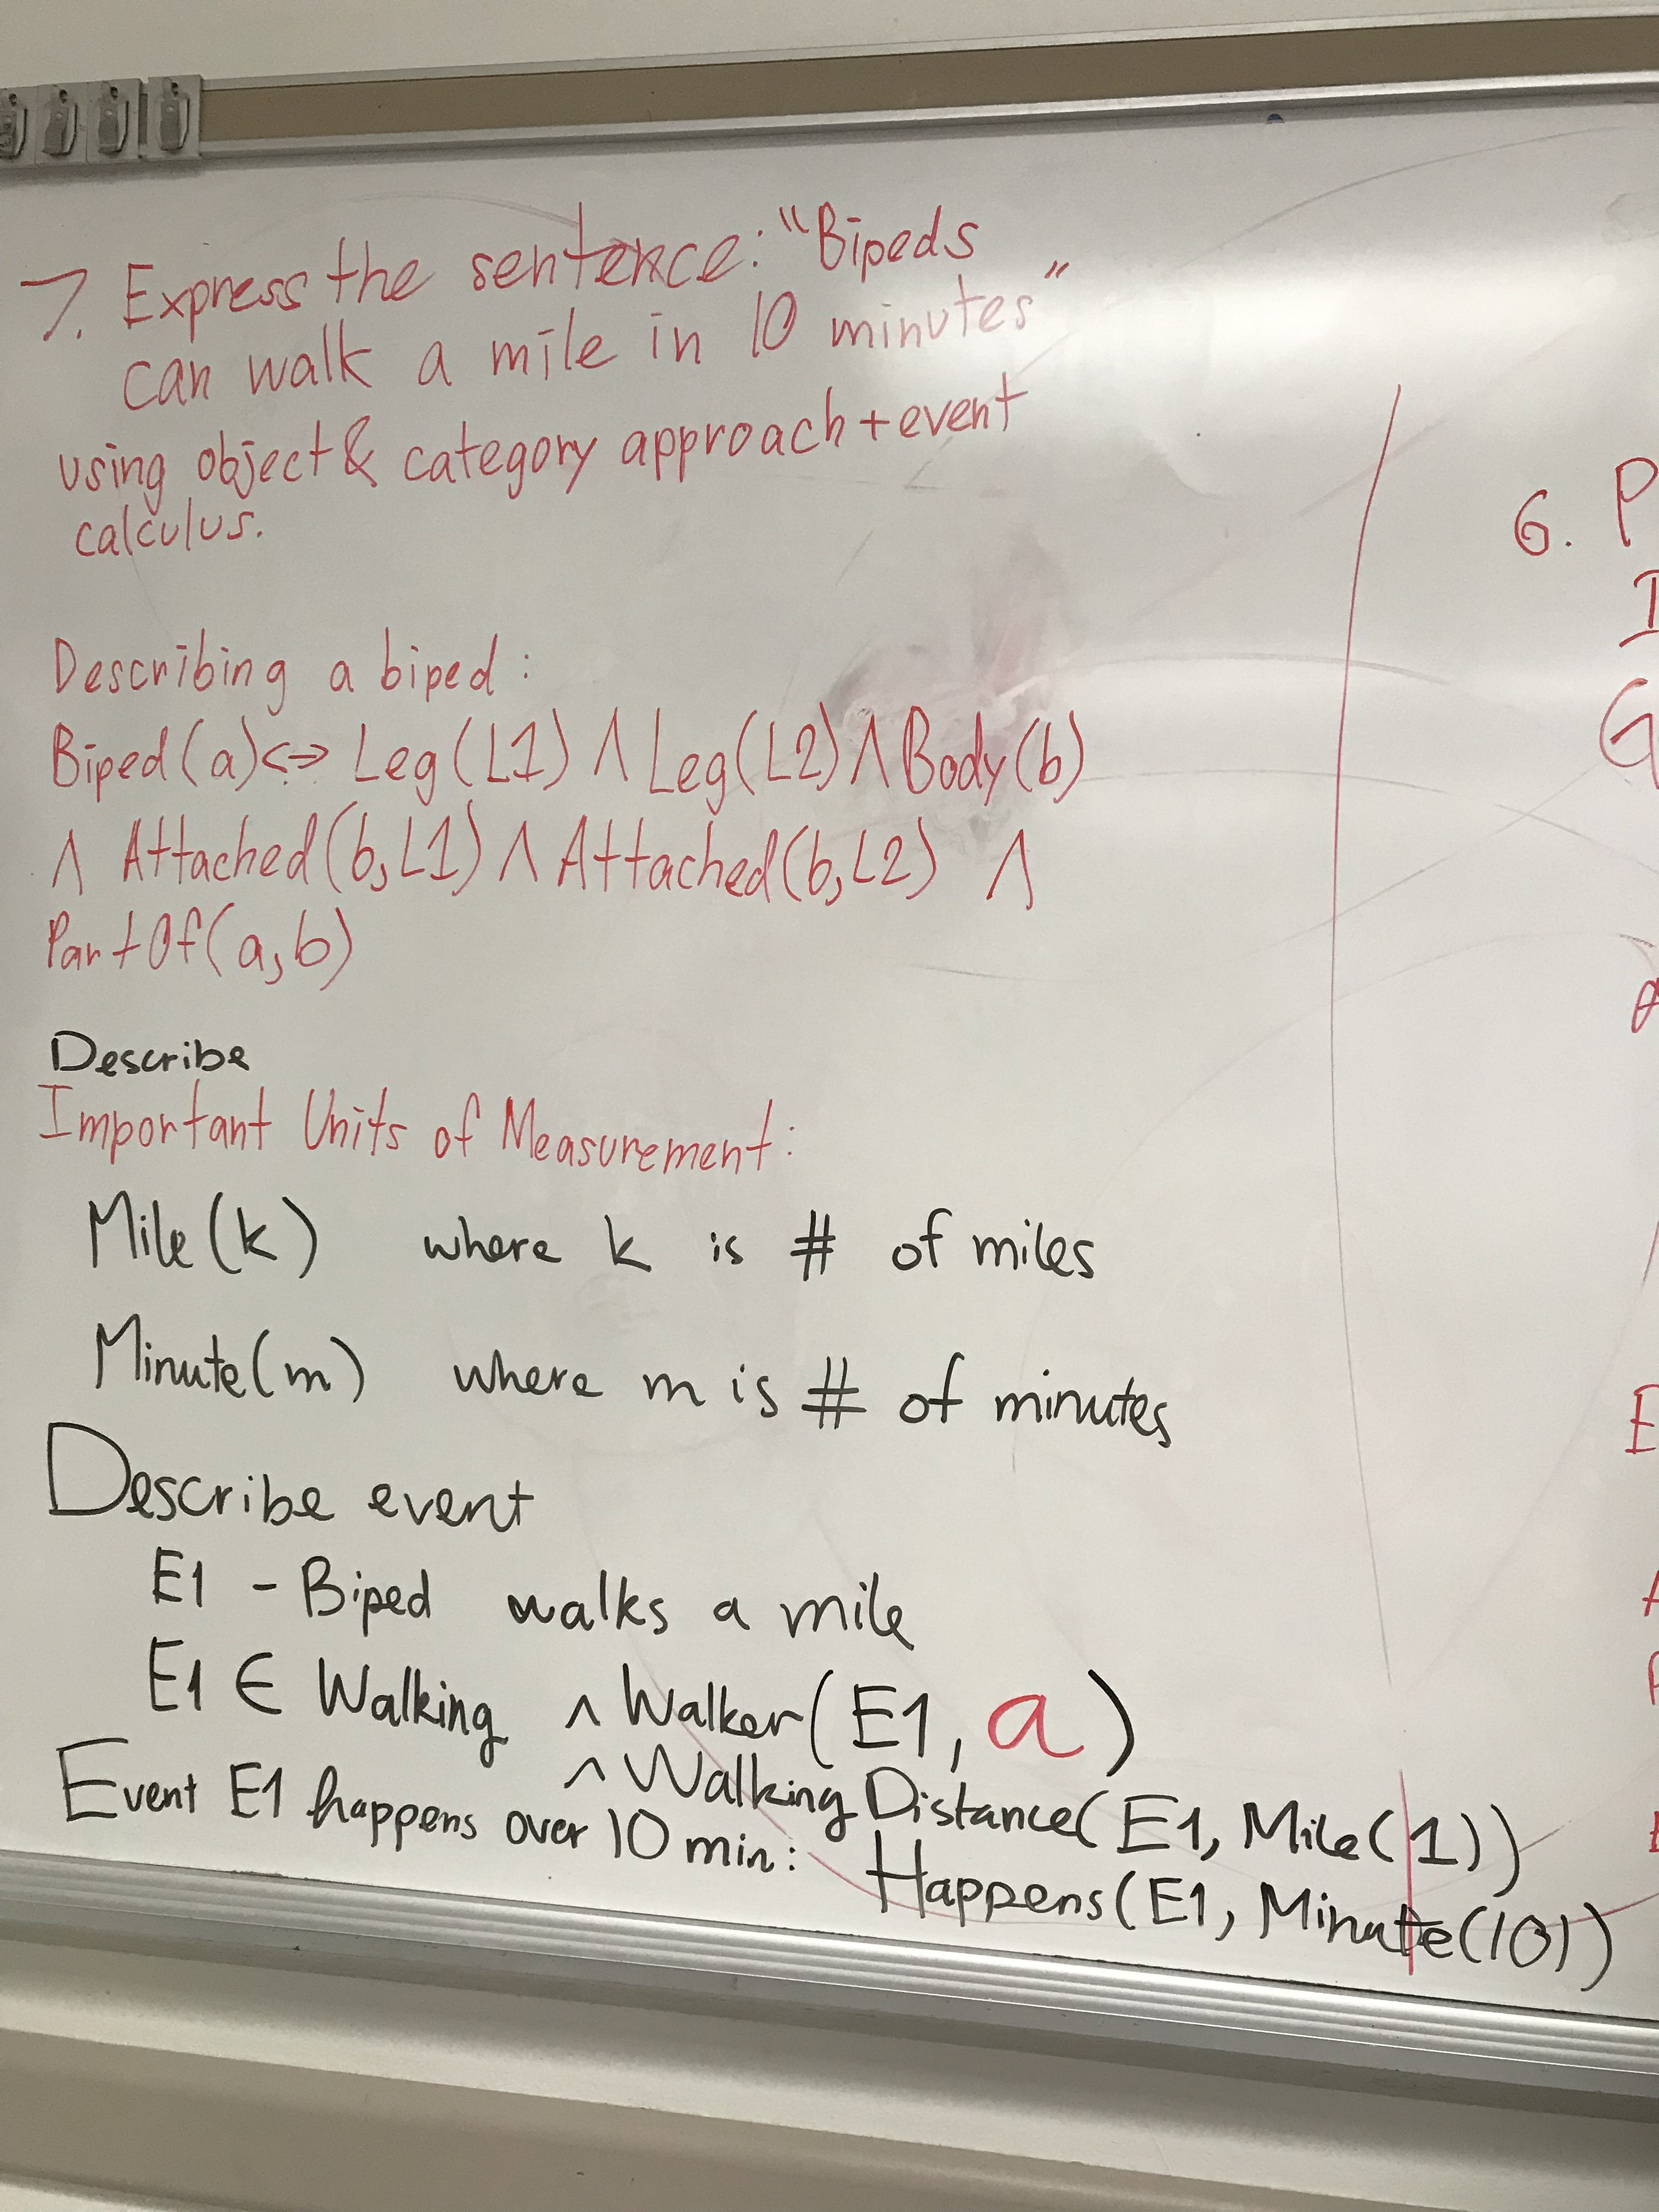 7. Express the sentence: "Bipeds
can walk a mile in 10 minutes"
using object & category approach + event
calculus.
Describing a biped:
Biped(a) <=> Leg(L1) ∧ Leg(L2) ∧ Body(b)
∧ Attached(b,L1) ∧ Attached(b,L2) ∧
PartOf(a,b)
Describe
Important Units of Measurement:
Mile(k) where k is # of miles
Minute(m) where m is # of minutes
Describe event
E1 - Biped walks a mile
E1 ∈ Walking ∧ Walker(E1, a)
∧ WalkingDistance(E1, Mile(1))
Event E1 happens over 10 min: Happens(E1, Minute(10))
6. P
I
G
E
A